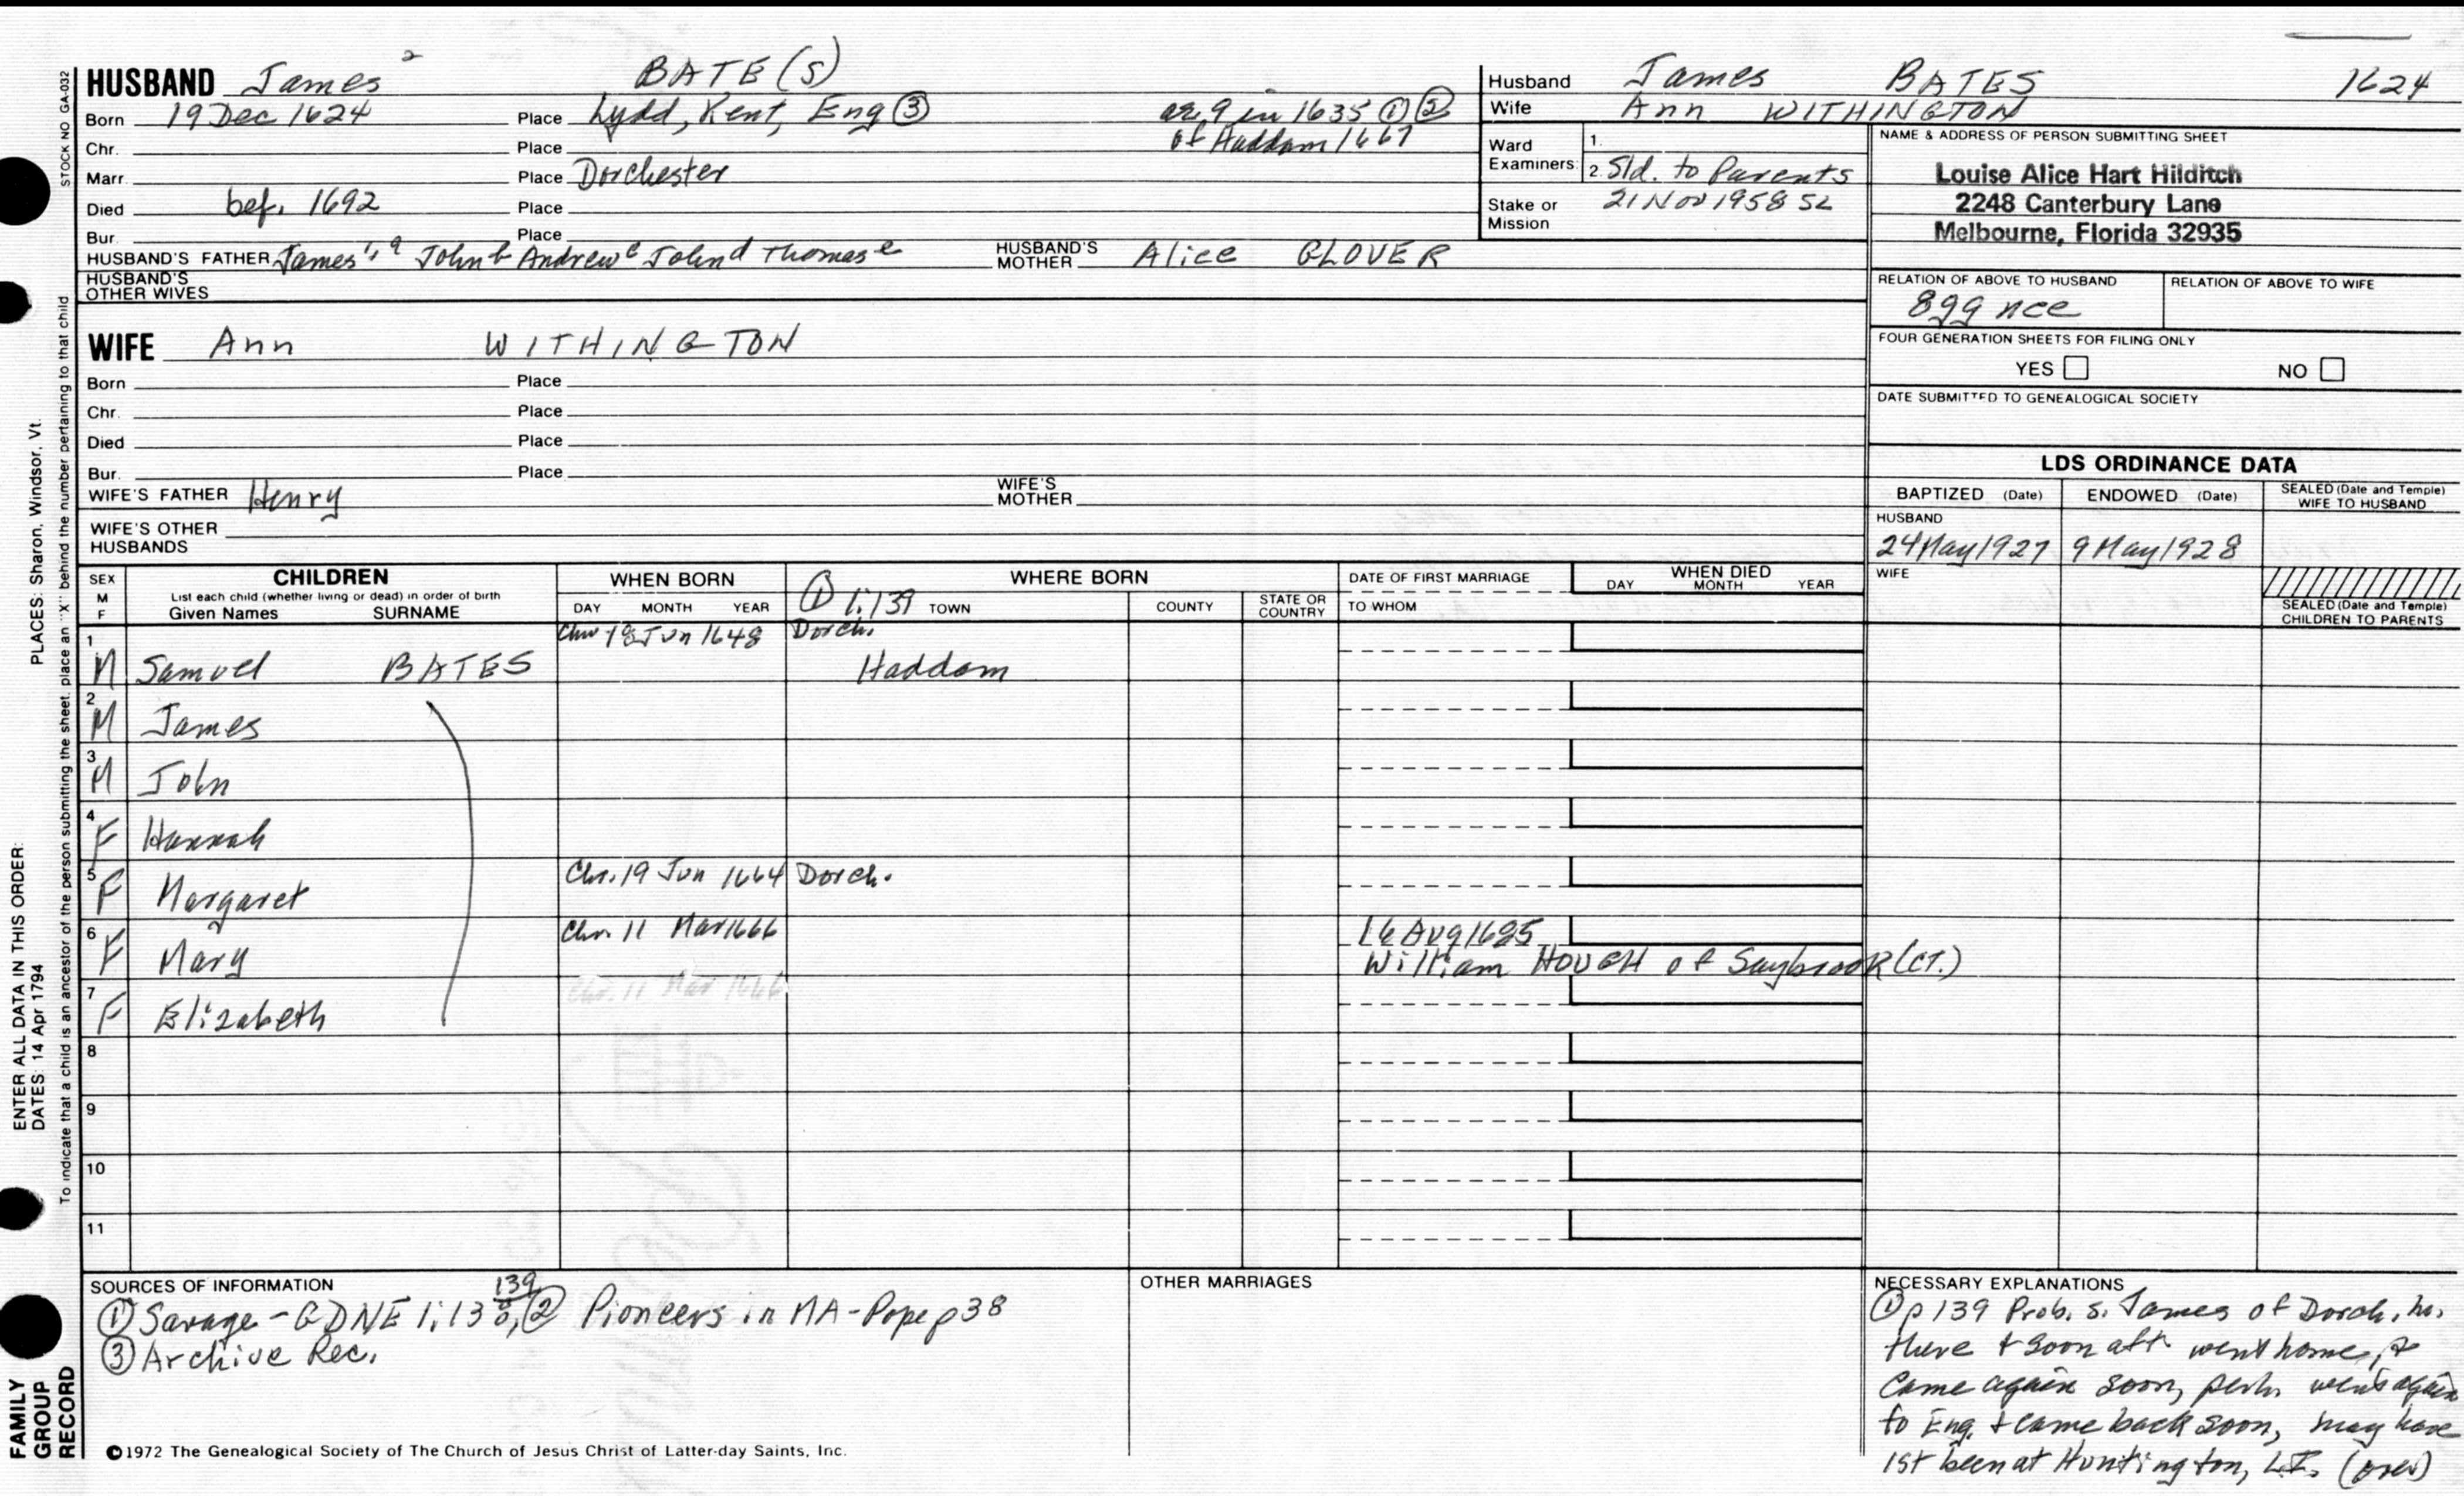 HUSBAND James 2 BATE(S)
Born 19 Dec 1624 Place Lydd, Kent, Eng ③ ae. 9 in 1635 ① ②
Chr. Place of Haddam 1667
Marr. Place Dorchester
Died bef. 1692 Place
Bur. Place
HUSBAND'S FATHER James 1, a John b Andrew c John d Thomas e HUSBAND'S MOTHER Alice GLOVER
HUSBAND'S OTHER WIVES
WIFE Ann WITHINGTON
Born Place
Chr. Place
Died Place
Bur. Place
WIFE'S FATHER Henry WIFE'S MOTHER
WIFE'S OTHER HUSBANDS
Husband James BATES 1624
Wife Ann WITHINGTON
Ward Examiners: 1.
2. Sld. to Parents
Stake or Mission 21 Nov 1958 SL
NAME & ADDRESS OF PERSON SUBMITTING SHEET
Louise Alice Hart Hilditch
2248 Canterbury Lane
Melbourne, Florida 32935
RELATION OF ABOVE TO HUSBAND RELATION OF ABOVE TO WIFE
8gg nce
FOUR GENERATION SHEETS FOR FILING ONLY
YES NO
DATE SUBMITTED TO GENEALOGICAL SOCIETY
LDS ORDINANCE DATA
BAPTIZED (Date) ENDOWED (Date) SEALED (Date and Temple) WIFE TO HUSBAND
HUSBAND
24 May 1927 9 May 1928
WIFE
SEALED (Date and Temple) CHILDREN TO PARENTS
SEX M F CHILDREN WHEN BORN WHERE BORN DATE OF FIRST MARRIAGE WHEN DIED
List each child (whether living or dead) in order of birth
Given Names SURNAME DAY MONTH YEAR ① 1:139 TOWN COUNTY STATE OR COUNTRY TO WHOM DAY MONTH YEAR
1 Chr 18 Jun 1648 Dorch.
M Samuel BATES Haddam
2
M James
3
M John
4
F Hannah
5 Chr. 19 Jun 1664 Dorch.
F Margaret
6 Chr. 11 Mar 1666 16 Aug 1685
F Mary William HOUGH of Saybrook (CT.)
7 Chr. 11 Mar 1666
F Elizabeth
8
9
10
11
SOURCES OF INFORMATION
① Savage - GDNE 1:138, 139 ② Pioneers in MA - Pope p 38
③ Archive Rec.
OTHER MARRIAGES
NECESSARY EXPLANATIONS
① p 139 Prob. s. James of Dorch, m.
there & soon aft. went home, &
came again soon, perh. went again
to Eng. & came back soon, may have
1st been at Huntington, L.I. (over)
©1972 The Genealogical Society of The Church of Jesus Christ of Latter-day Saints, Inc.
STOCK NO GA-032
PLACES: Sharon, Windsor, Vt.
To indicate that a child is an ancestor of the person submitting the sheet, place an "X" behind the number pertaining to that child
ENTER ALL DATA IN THIS ORDER:
DATES: 14 Apr 1794
FAMILY GROUP RECORD